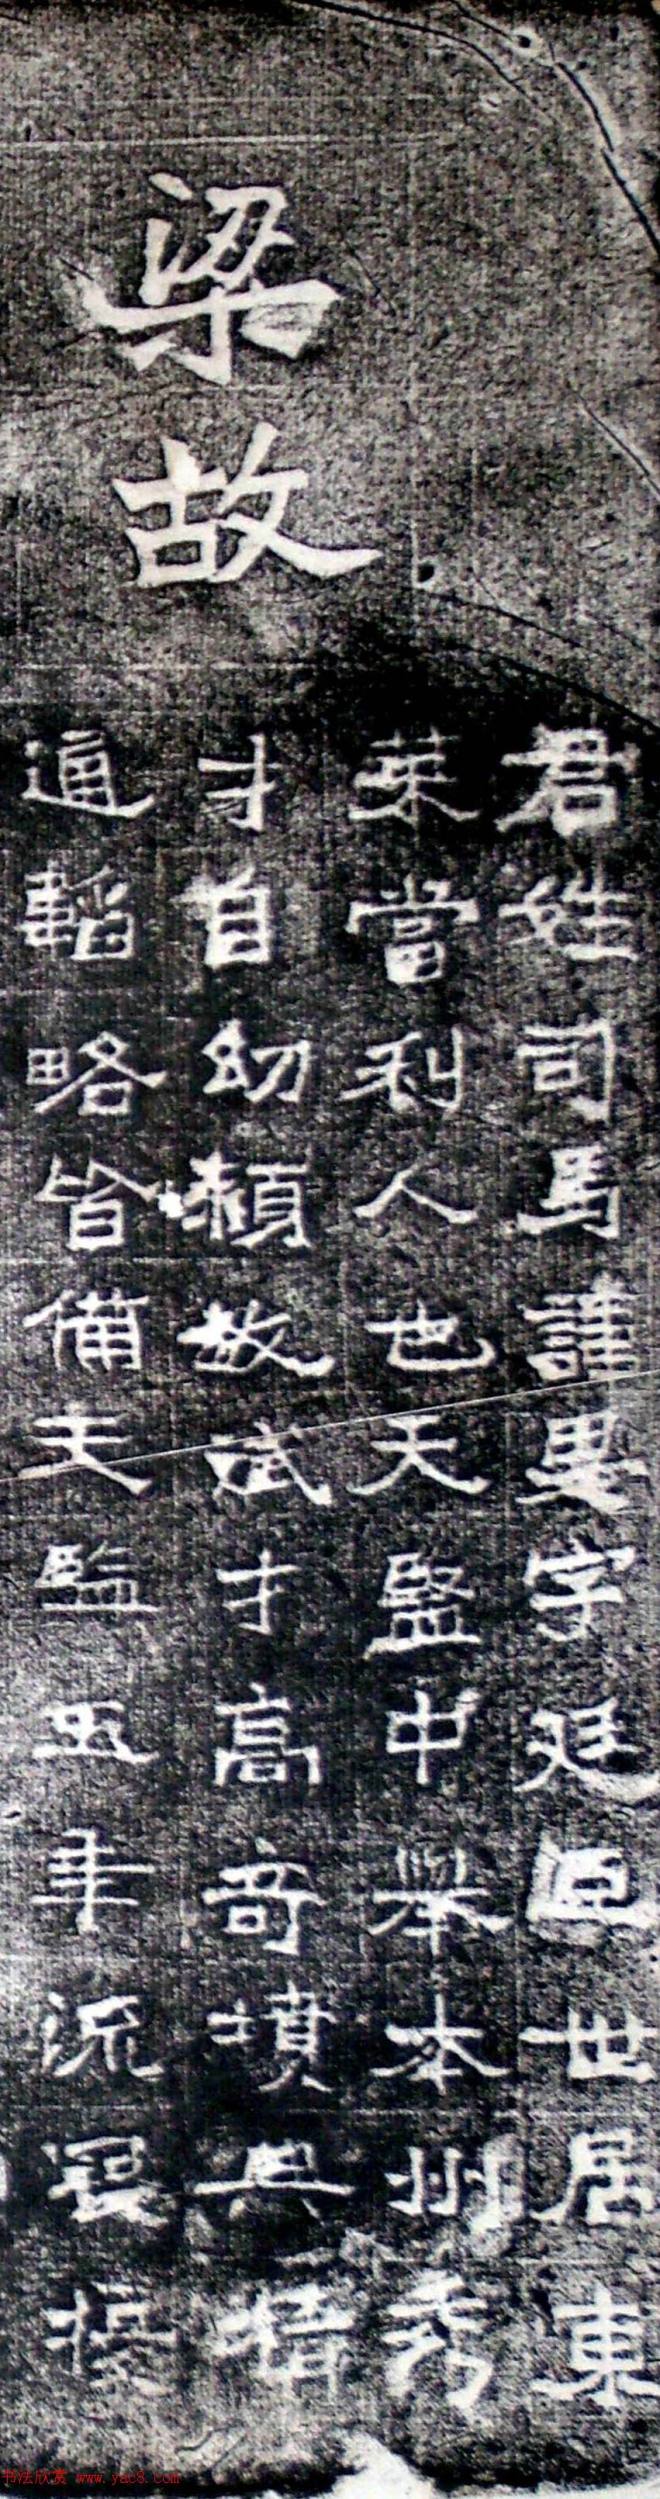 梁故
君姓司馬諱㬎字廷逈世居東
萊當利人也天監中舉本州秀
才自幼穎敏斌才高奇墳典精
通韜略皆備天監五年流罢擾
书法欣赏 www.yac8.com